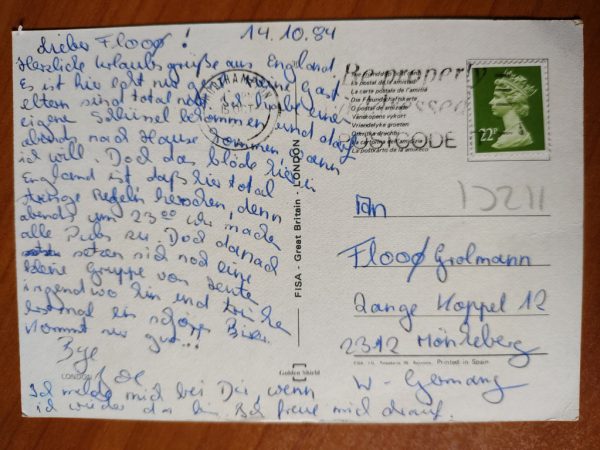 14.10.84
Lieber Flooo!
Herzliche Urlaubsgrüße aus England.
Es ist hier echt nur geil. Meine Gast-
eltern sind total nett. Ich habe einen
eigene Schlüssel bekommen und darf
abends nach Hause kommen wann
ich will. Doch das blöde hier in
England ist, daß hier total
strenge Regeln herrschen, denn
abends um 23.00 Uhr machen
alle Pubs zu. Doch danach
setzen sich noch eine
kleine Gruppe von Leute
irgendwo hin und trinken
erstmal ein schönes Bier.
Kommt nur gut...!
Bye
Ich melde mich bei Dir, wenn
ich wieder da bin. Ich freue mich drauf.
LONDON
Golden Shield
FISA - Great Britain - LONDON
Be properly
addressed
POSTCODE
The friendship card
La carte postale de l'amitié
La postal de la amistad
La cartolina dell'amicizia
22P
1D211
An
Flooo Grolmann
Lange Koppel 12
2312 Mönkeberg
Printed in Spain
W-Germany